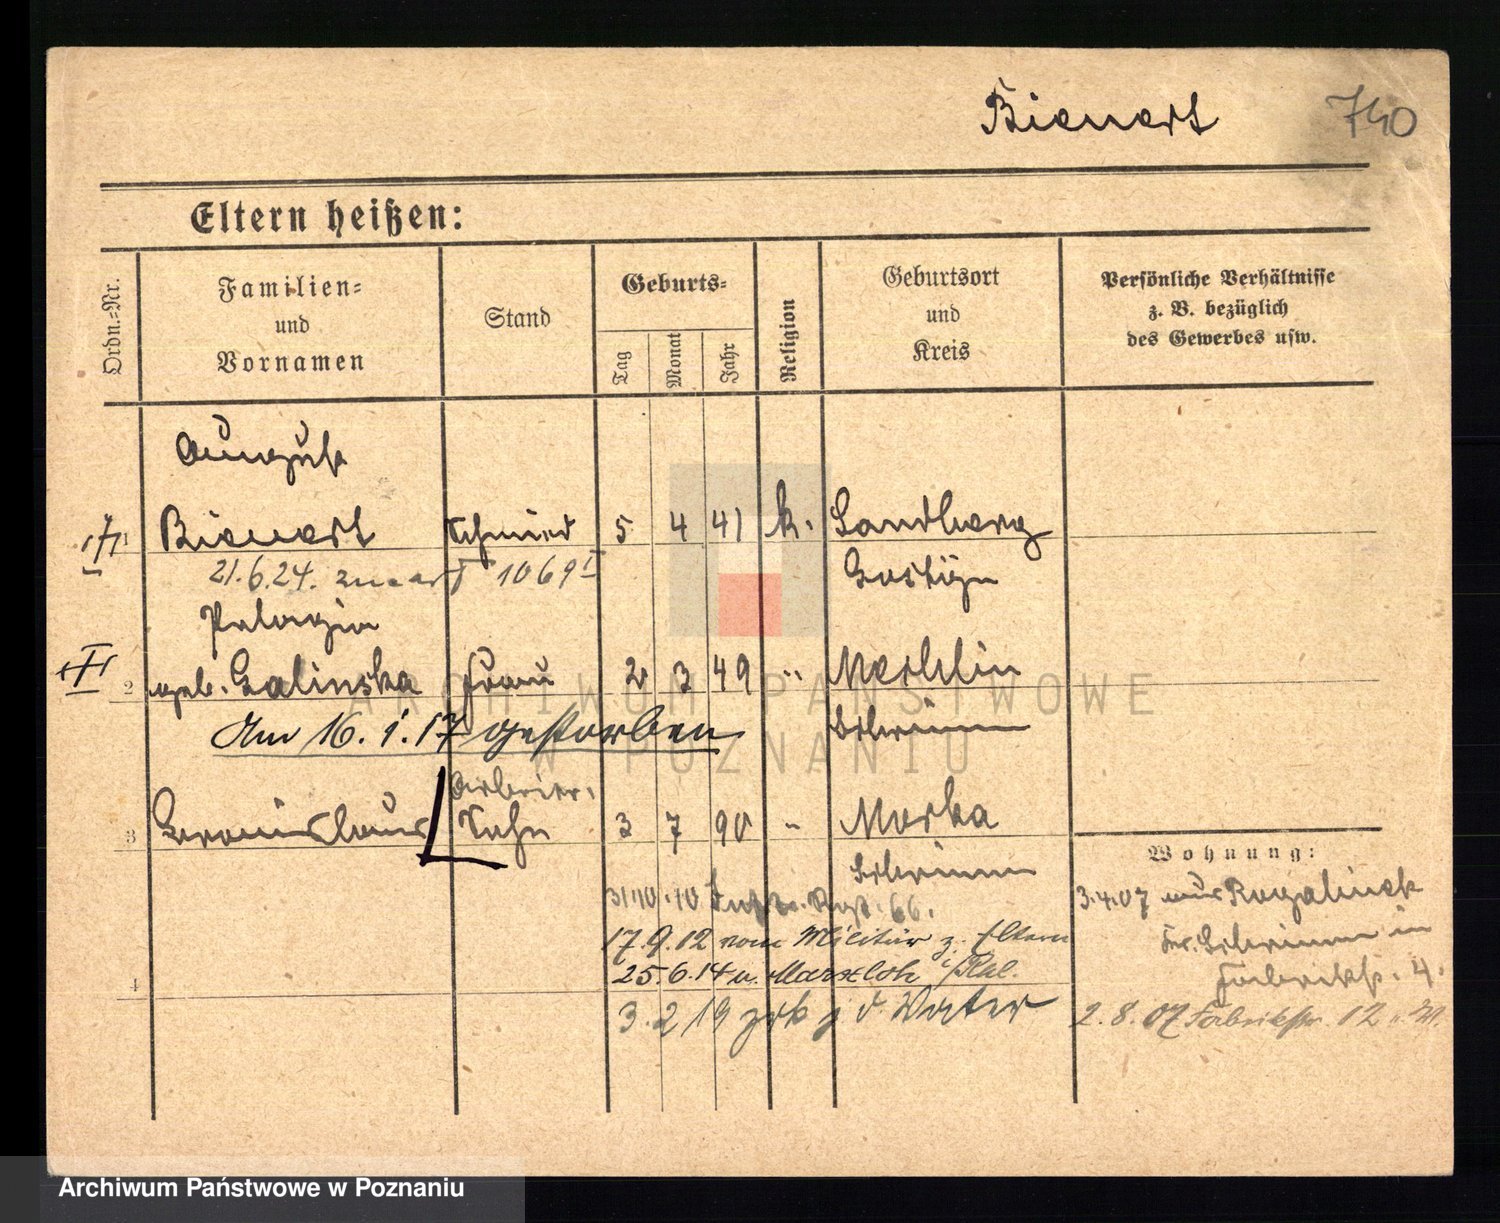 Bienert 740
Eltern heißen:
Ordn.-Nr.
Familien-
und
Vornamen
Stand
Geburts-
Tag
Monat
Jahr
Religion
Geburtsort
und
Kreis
Persönliche Verhältnisse
z. B. bezüglich
des Gewerbes usw.
August
1 Bienert Schmied 5 4 41 k. Sandberg
21.6.24. 1069 I Gostÿn
Pelagia
2 geb. Galinska Frau 2 3 49 " Mechlin
Am 16.1.17 gestorben Schrimm
Arbeiter.
3 Sohn 3 7 90 " Morka
Schrimm
Wohnung:
31.10.10 Inftr. Regt. 66.
3.4.07 aus Rogalinek
17.9.12 vom Militär z. Eltern
Kr. Schrimm in
25.6.14 n. Marxloh
Fabrikstr. 4.
4
3.2.19 zrk z d. Vater
2.8.07 Fabrikstr. 12
ARCHIWUM PAŃSTWOWE
W POZNANIU
Archiwum Państwowe w Poznaniu